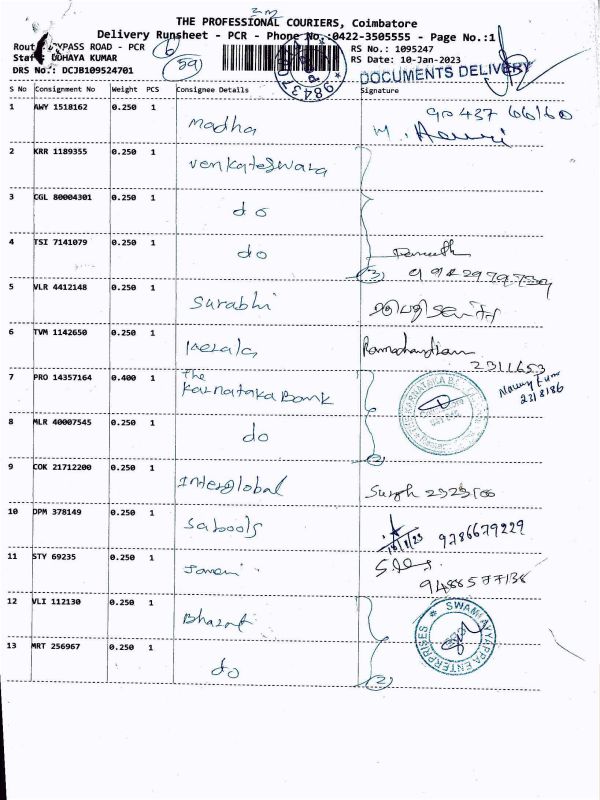 2m
THE PROFESSIONAL COURIERS, Coimbatore
Delivery Runsheet - PCR - Phone No.:0422-3505555 - Page No.:1
Route: BYPASS ROAD - PCR
RS No.: 1095247
Staff: UDHAYA KUMAR
59
RS Date: 10-Jan-2023
DRS No.: DCJB109524701
DOCUMENTS DELIVERY
S No Consignment No Weight PCS Consignee Details Signature
1 AWY 1518162 0.250 1 Madha
2 KRR 1189355 0.250 1 Venkateswara
3 CGL 80004301 0.250 1 do
4 TSI 7141079 0.250 1 do
(3)
5 VLR 4412148 0.250 1 Surabhi
6 TVM 1142650 0.250 1 Kerala Ramachandran
2311653
7 PRO 14357164 0.400 1 The Karnataka Bank
8 MLR 40007545 0.250 1 do
(2)
9 COK 21712200 0.250 1 Interglobal
10 DPM 378149 0.250 1 9786679229
11 STY 69235 0.250 1
9488577138
12 VLI 112130 0.250 1 Bharat
SWAMI AYYAPPA ENTERPRISES
13 MRT 256967 0.250 1 do
(2)